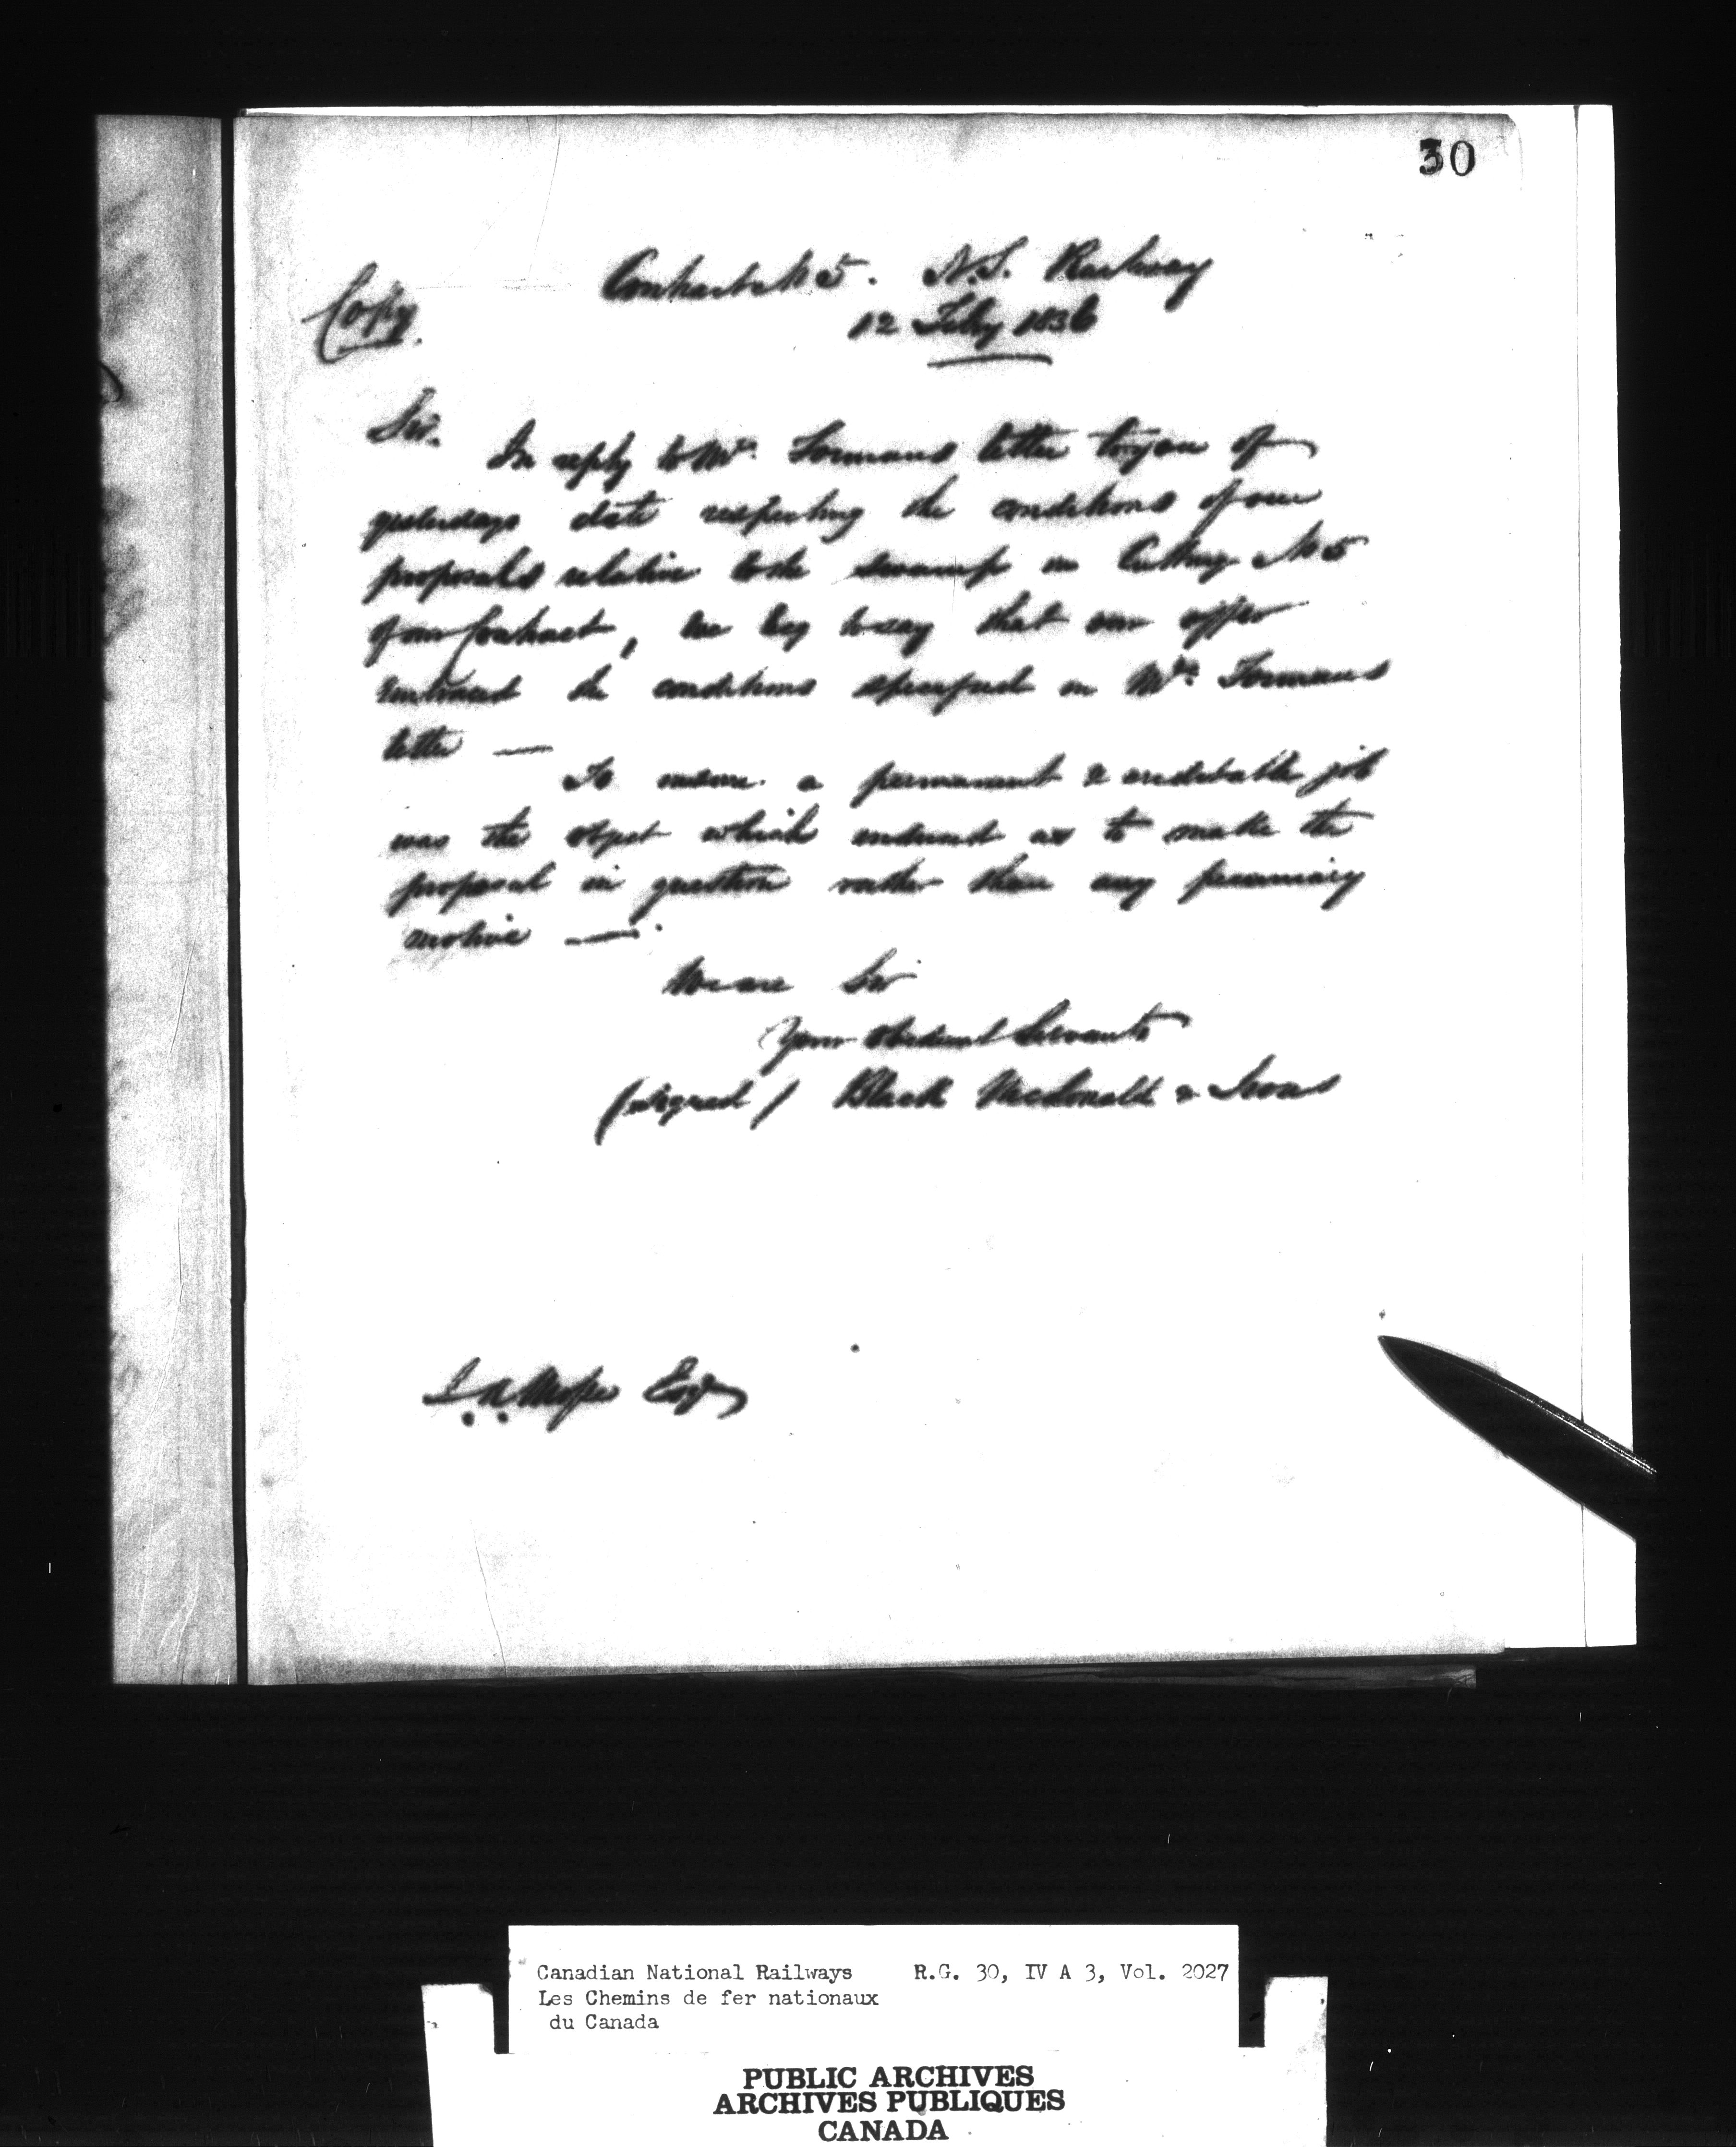 30
Copy.
Contract No 5. N.S. Railway
12 Feby 1856
Sir.
In reply to Mr. Formans letter to you of
yesterdays date respecting the conditions of our
proposals relative to the swamp in Cutting No 5
of our Contract, we beg to say that our offer
embraced the conditions specified in Mr. Formans
letter —
To insure a permanent & creditable job
was the object which induced us to make the
proposal in question rather than any pecuniary
motive —
We are Sir
Your Obedient Servants
(signed) Black McDonald &
Esqr
Canadian National Railways R.G. 30, IV A 3, Vol. 2027
Les Chemins de fer nationaux
du Canada
PUBLIC ARCHIVES
ARCHIVES PUBLIQUES
CANADA